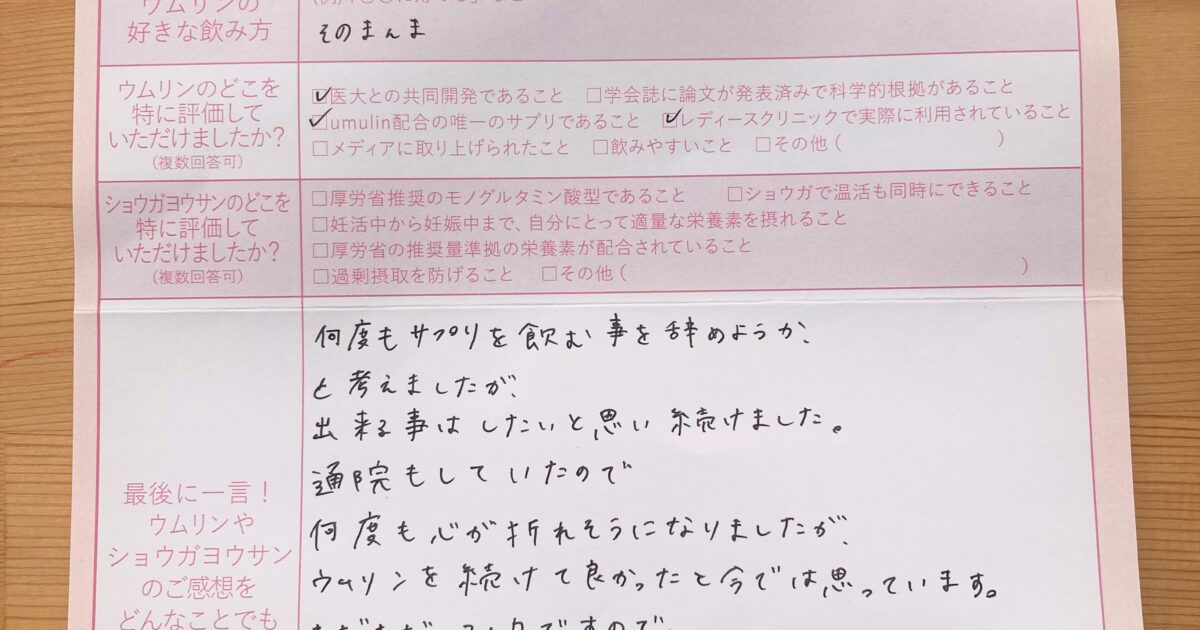 ウムリンの
好きな飲み方
そのまんま
ウムリンのどこを
特に評価して
いただけましたか?
(複数回答可)
☑医大との共同開発であること □学会誌に論文が発表済みで科学的根拠があること
☑umulin配合の唯一のサプリであること ☑レディースクリニックで実際に利用されていること
□メディアに取り上げられたこと □飲みやすいこと □その他( )
ショウガヨウサンのどこを
特に評価して
いただけましたか?
(複数回答可)
□厚労省推奨のモノグルタミン酸型であること □ショウガで温活も同時にできること
□妊活中から妊娠中まで、自分にとって適量な栄養素を摂れること
□厚労省の推奨量準拠の栄養素が配合されていること
□過剰摂取を防げること □その他( )
最後に一言!
ウムリンや
ショウガヨウサン
のご感想を
どんなことでも
何度もサプリを飲む事を辞めようか、
と考えましたが、
出来る事はしたいと思い続けました。
通院もしていたので
何度も心が折れそうになりましたが、
ウムリンを続けて良かったと今では思っています。